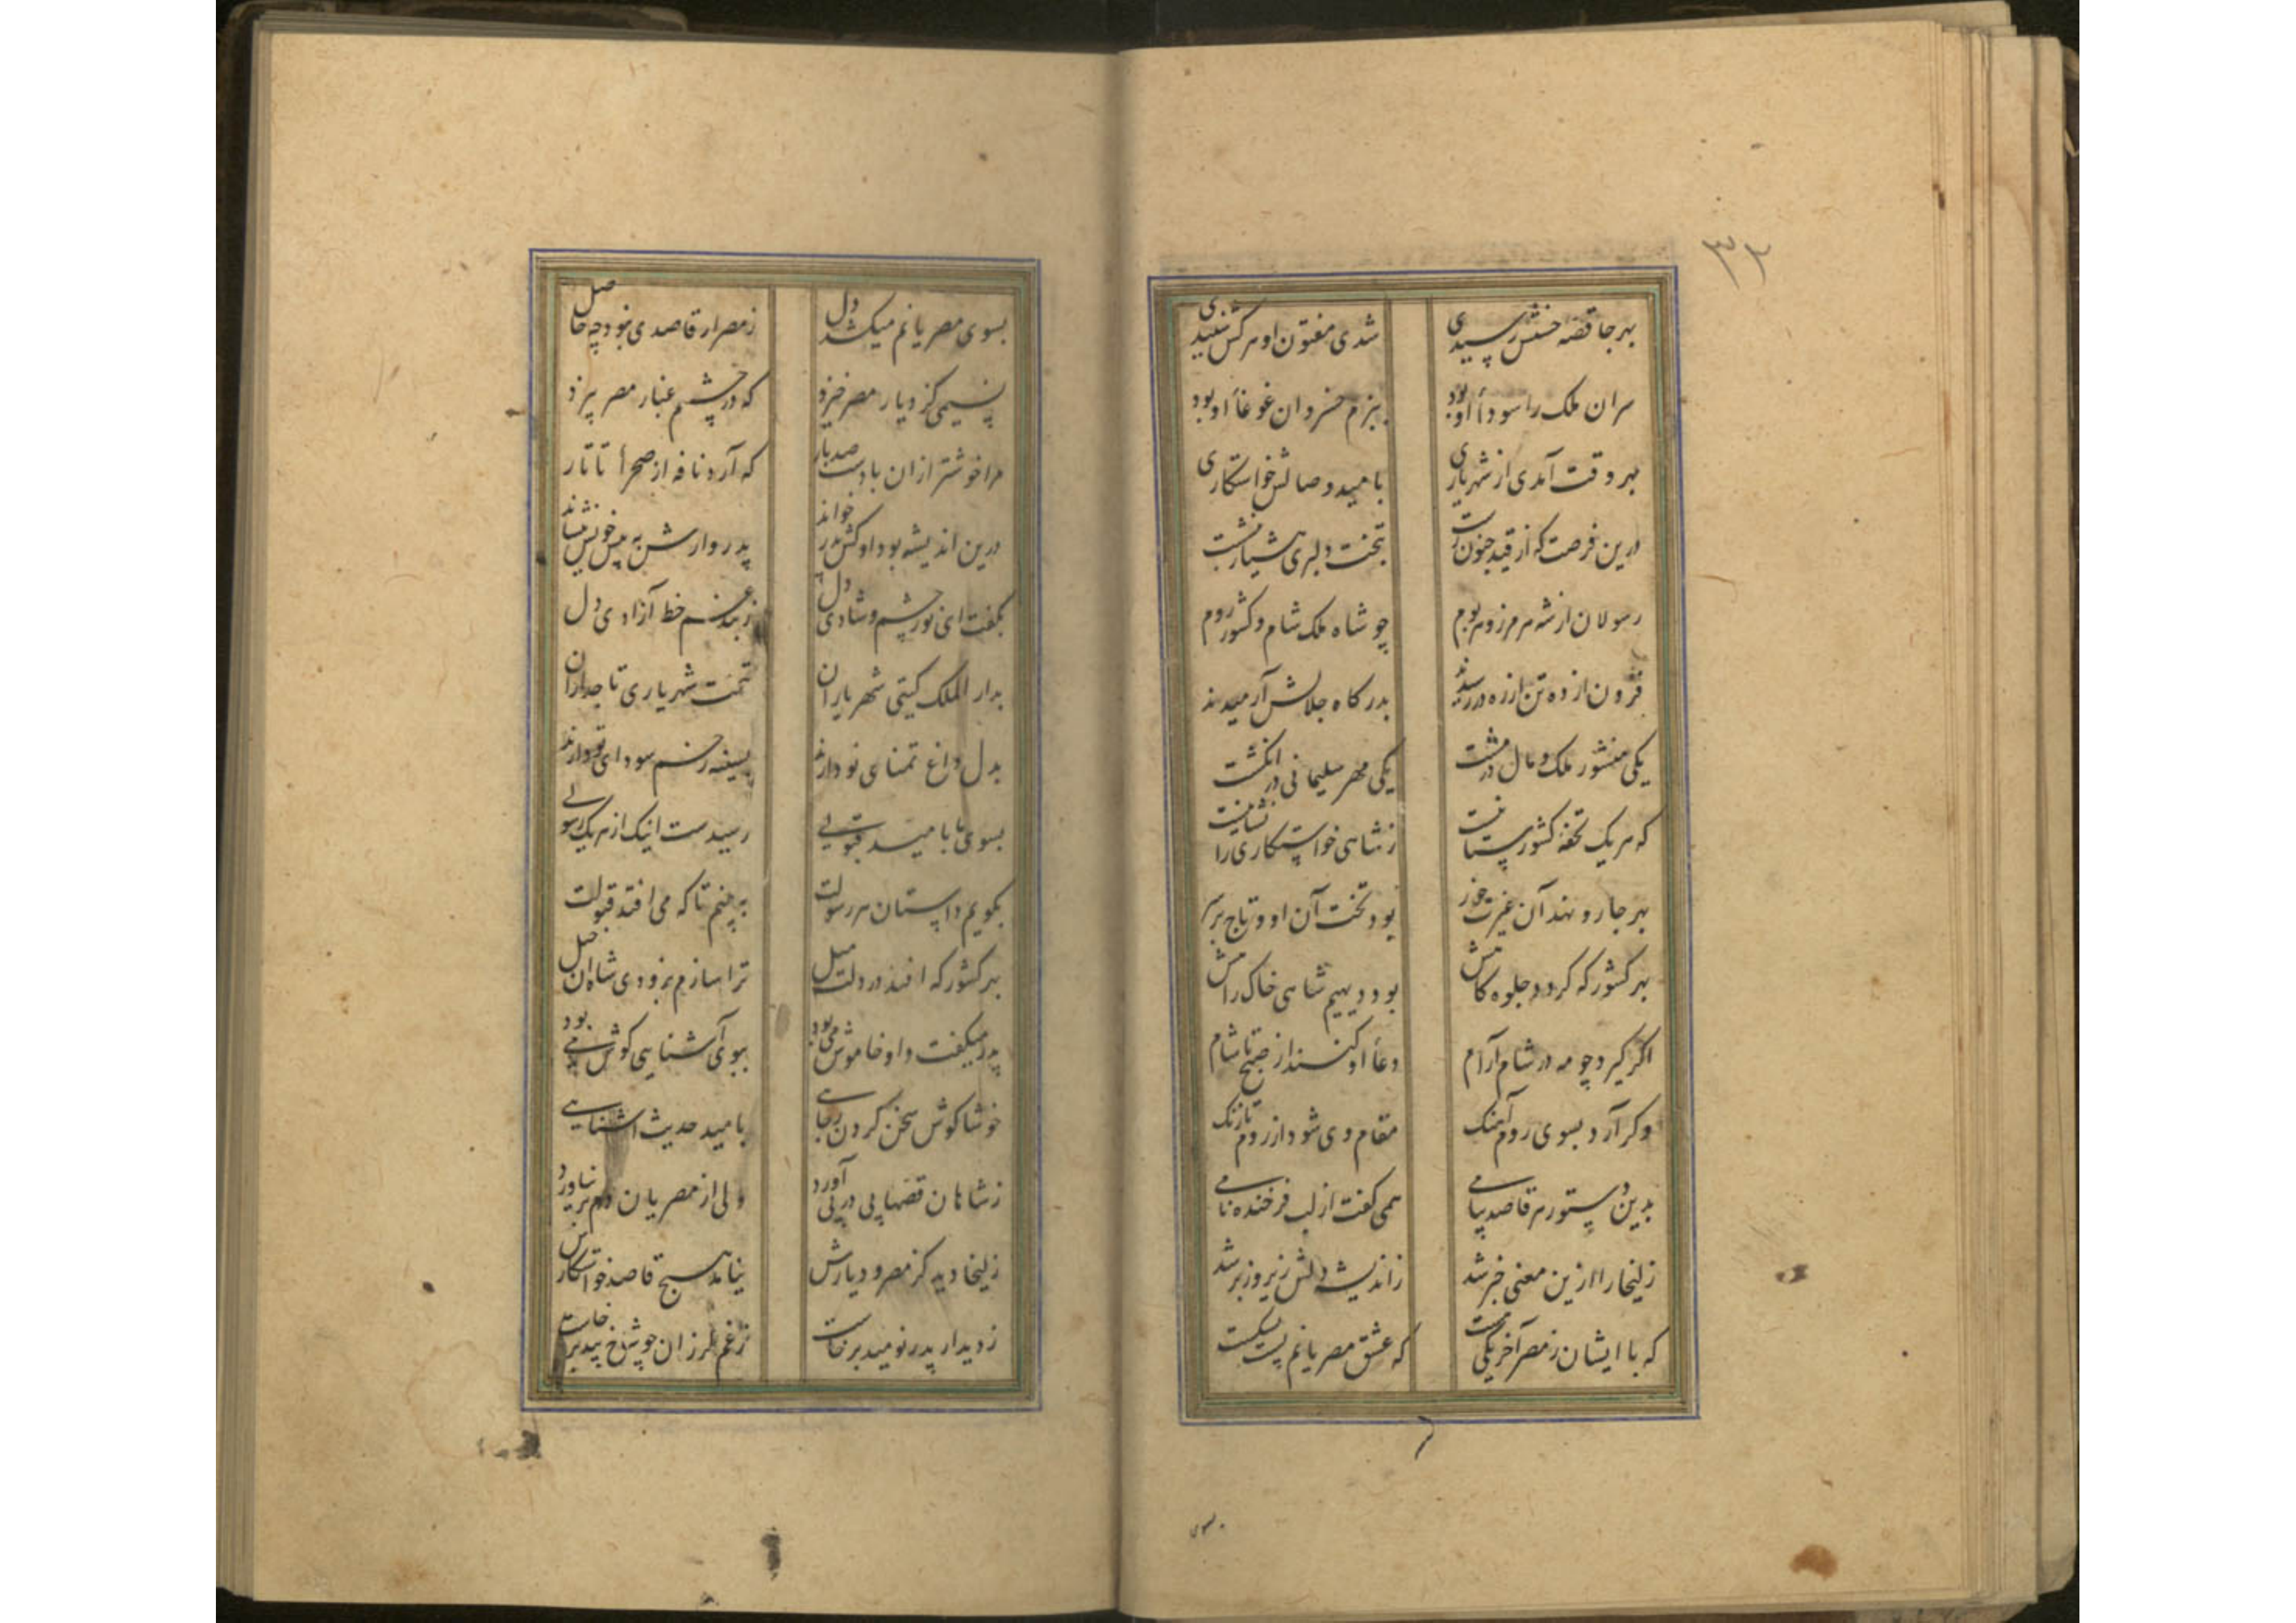 ۳۲
بهر جا قصه حسنش رسیدی شدی مفتون او هر کش شنیدی
سران ملک را سوداأ او بود ببزم خسروان غوغاأ او بود
بهر وقت آمدی از شهریاری بامید وصالش خواستکاری
درین فرصت که از قید جنون رست بتخت دلبری هشیار بنشست
رسولان از شه هر مرز و هر بوم چو شاه ملک شام و کشور روم
فزون از ده تن از ره در رسیدند بدرکاه جلالش آرمیدند
یکی منشور ملک و مال در مشت یکی مهر سلیمانی در انکشت
که هر یک تحفه کشورستانیست ز شاهی خواستکاری را نشانیست
بهر جا رو نهد آن غیرت خور بود تخت آن او و تاج بر سر
بهر کشور که کردد جلوه کاهش بود دیهیم شاهی خاک راهش
اکر کیرد چو مه در شام آرام دعاأ او کنند از صبح تا شام
وکر آرد بسوی روم آهنک مقام وی شود از روم تا زنک
بدین دستور هر قاصد پیامی همی کفت از لب فرخنده نامی
زلیخا را ازین معنی خبر شد ز اندیشه دلش زیر و زبر شد
که با ایشان ز مصر آخر یکی هست که عشق مصریانم پشت بشکست
بسوی
بسوی مصریانم میکشد دل ز مصر ار قاصدی نبود چه حاصل
نسیمی کز دیار مصر خیزد که در چشمم غبار مصر بیزد
مرا خوشتر ازان بادست صد بار که آرد نافه از صحراأ تاتار
درین اندیشه بود او کش پدر خواند پدروارش به پیش خویش بنشاند
بکفت ای نور چشم و شادی دل ز بند غم خط آزادی دل
بدار الملک کیتی شهریاران بتخت شهریاری تاجداران
بدل داغ تمنای تو دارند بسینه تخم سودای تو دارند
بسوی ما بامید قبولی رسیدست اینک از هر یک رسولی
بکویم داستان هر رسولت به بینم تا که می افتد قبولت
بهر کشور که افتد در دلت میل ترا سازم بزودی شاه آن خیل
پدر میکفت و او خاموش می بود ببوی آشنایی کوش می بود
خوشا کوش سخن کردن ز جایی بامید حدیث آشنایی
ز شاهان قصهاپی در پی آورد ولی از مصریان دم بر نیاورد
زلیخا دید کز مصر و دیارش نیامد هیچ قاصد خواستکارش
ز دیدار پدر نومید برخاست ز غم لرزان چو شاخ بید برخاست